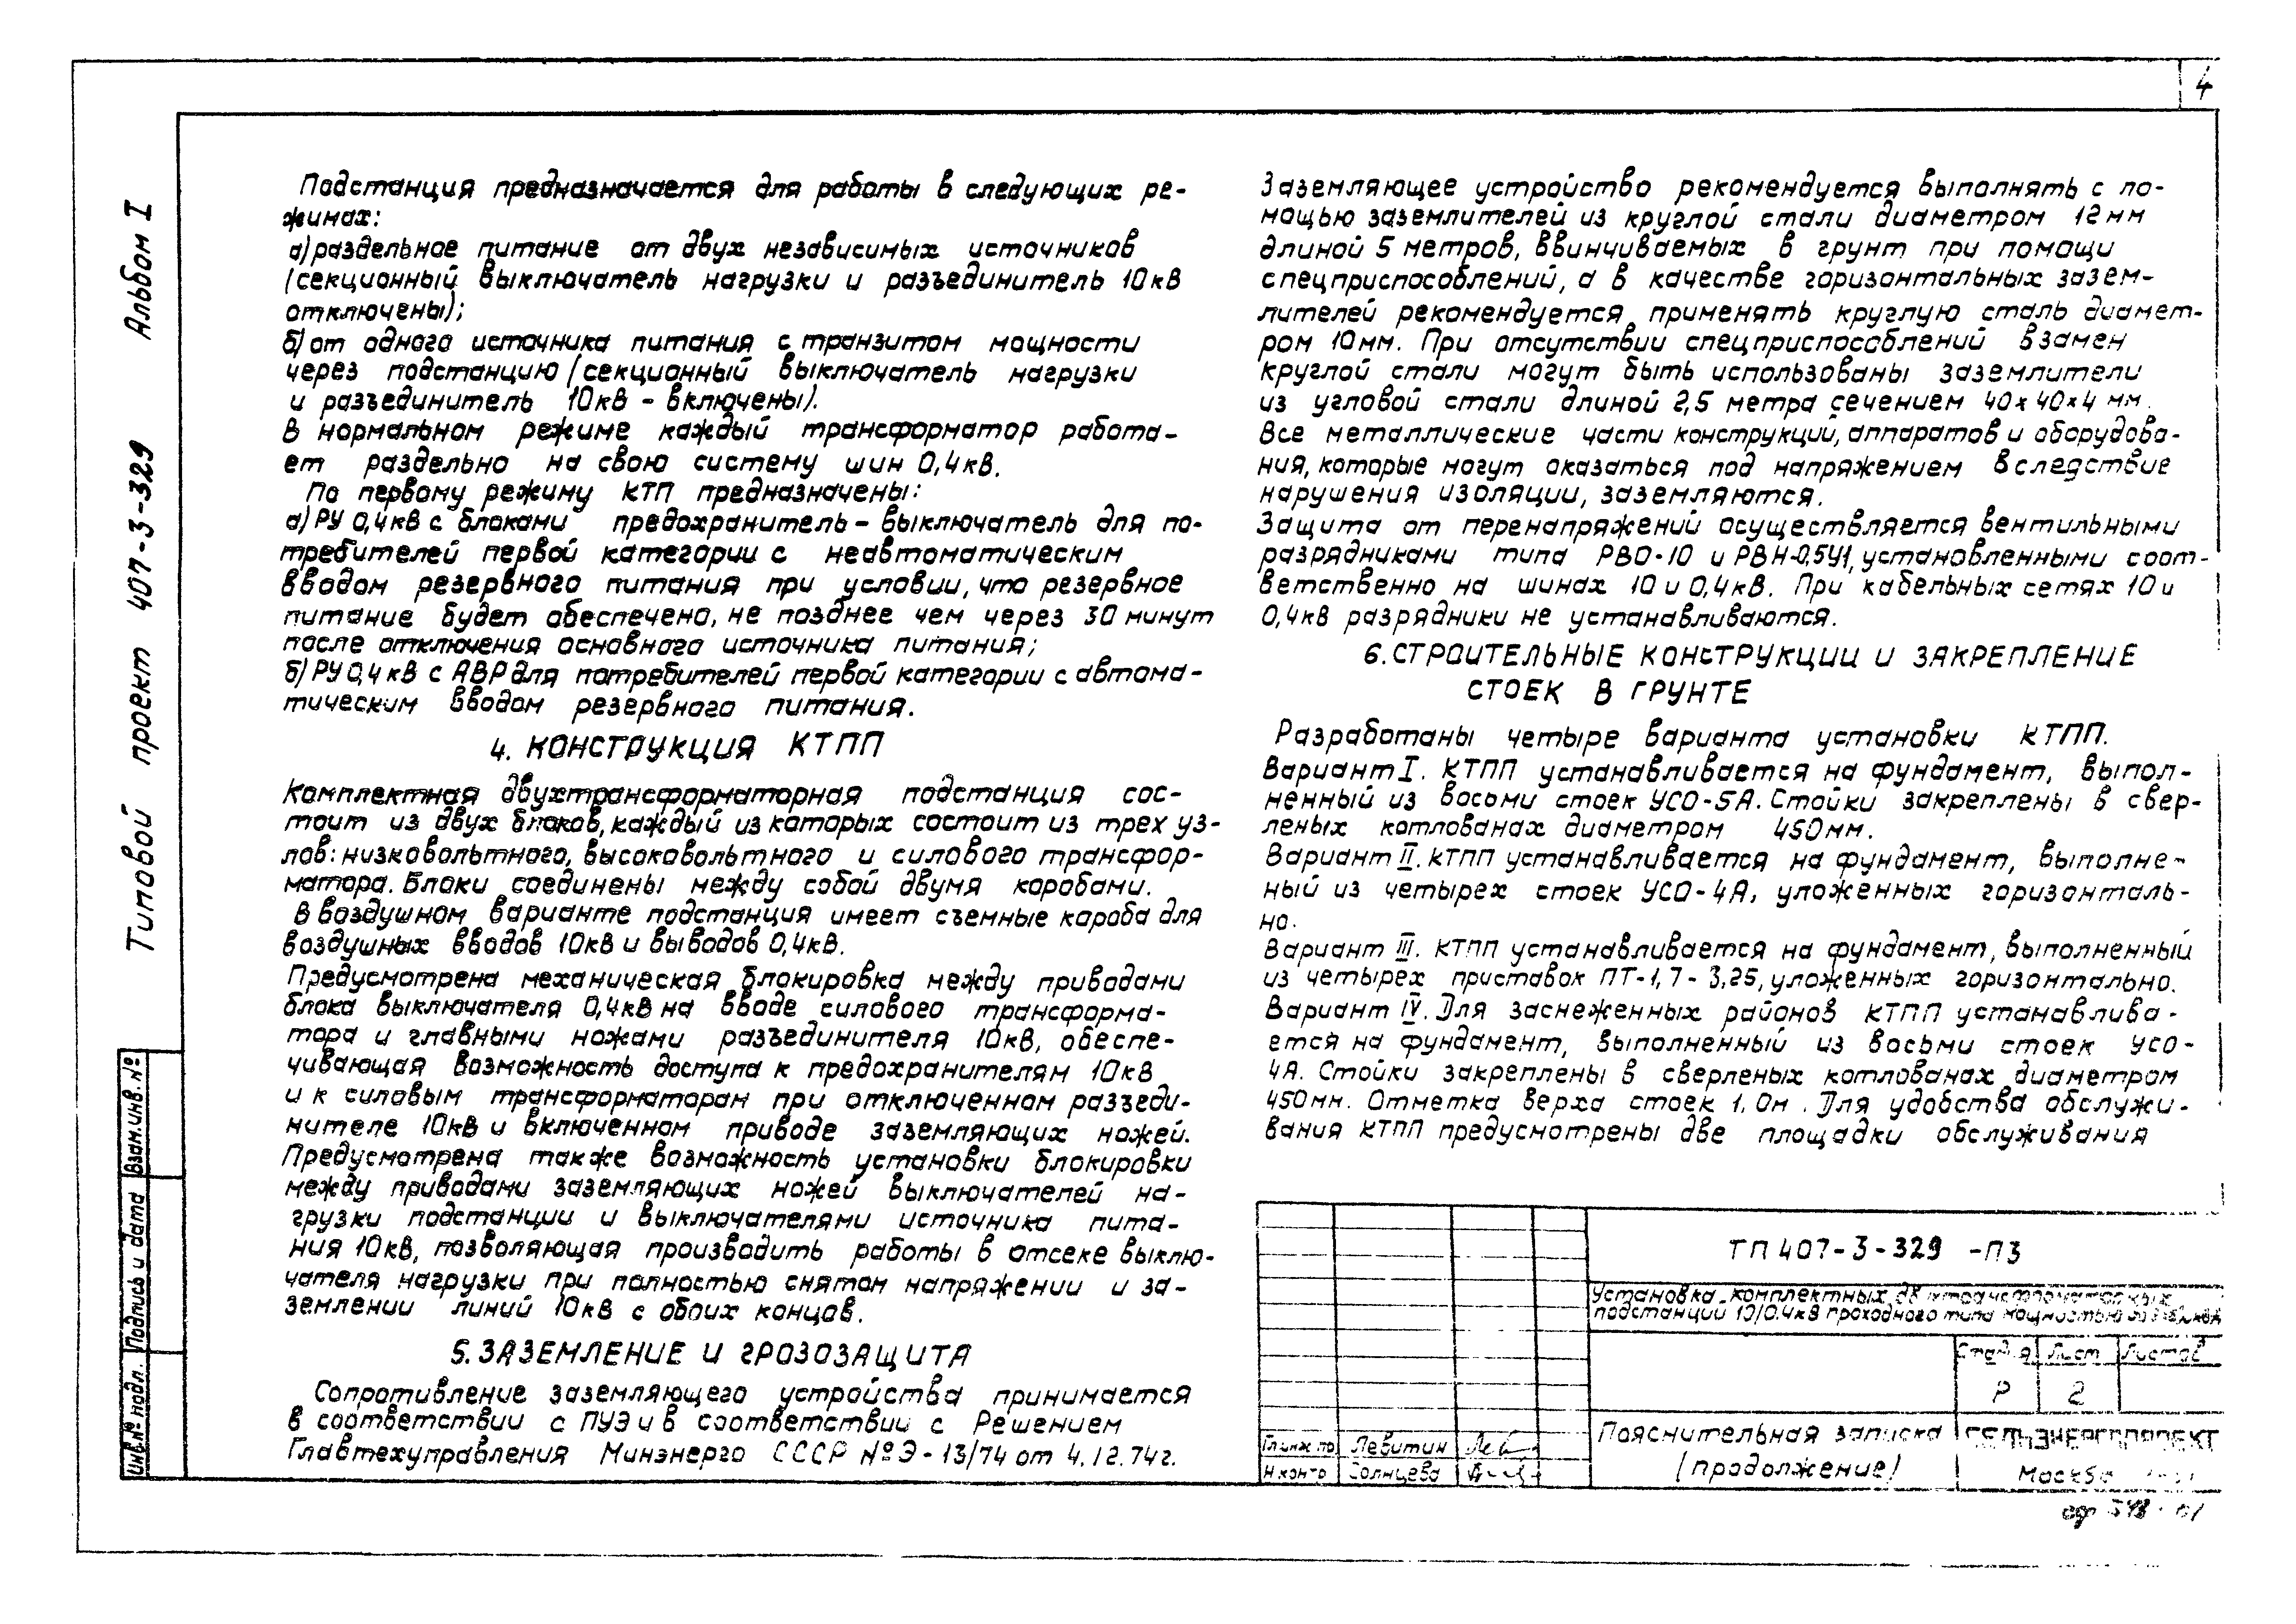 4
Альбом I
Типовой проект 407-3-329
Подстанция предназначается для работы в следующих ре-
жинах:
а) раздельное питание от двух независимых источников
(секционный выключатель нагрузки и разъединитель 10кв
отключены);
б) от одного источника питания с транзитом мощности
через подстанцию (секционный выключатель нагрузки
и разъединитель 10кв - включены).
В нормальном режиме каждый трансформатор работа-
ет раздельно на свою систему шин 0,4кв.
По первому режиму КТП предназначены:
а) РУ 0,4кв с блоками предохранитель - выключатель для по-
требителей первой категории с неавтоматическим
вводом резервного питания при условии, что резервное
питание будет обеспечено, не позднее чем через 30 минут
после отключения основного источника питания;
б) РУ 0,4кв с АВР для потребителей первой категории с автома-
тическим вводом резервного питания.
4. КОНСТРУКЦИЯ КТПП
Комплектная двухтрансформаторная подстанция сос-
тоит из двух блоков, каждый из которых состоит из трех уз-
лов: низковольтного, высоковольтного и силового трансфор-
матора. Блоки соединены между собой двумя коробами.
В воздушном варианте подстанция имеет съемные короба для
воздушных вводов 10кв и выводов 0,4кв.
Предусмотрена механическая блокировка между приводами
блока выключателя 0,4кв на вводе силового трансформа-
тора и главными ножами разъединителя 10кв, обеспе-
чивающая возможность доступа к предохранителям 10кв
и к силовым трансформаторам при отключенном разъеди-
нителе 10кв и включенном приводе заземляющих ножей.
Предусмотрена также возможность установки блокировки
между приводами заземляющих ножей выключателей на-
грузки подстанции и выключателями источника пита-
ния 10кв, позволяющая производить работы в отсеке выклю-
чателя нагрузки при полностью снятом напряжении и за-
землении линий 10кв с обоих концов.
5. ЗАЗЕМЛЕНИЕ И ГРОЗОЗАЩИТА
Сопротивление заземляющего устройства принимается
в соответствии с ПУЭ и в соответствии с Решением
Главтехуправления Минэнерго СССР №Э-13/74 от 4.12.74г.
Заземляющее устройство рекомендуется выполнять с по-
мощью заземлителей из круглой стали диаметром 12мм
длиной 5 метров, ввинчиваемых в грунт при помощи
спецприспособлений, а в качестве горизонтальных зазем-
лителей рекомендуется применять круглую сталь диамет-
ром 10мм. При отсутствии спецприспособлений взамен
круглой стали могут быть использованы заземлители
из угловой стали длиной 2,5 метра сечением 40х40х4 мм.
Все металлические части конструкций, аппаратов и оборудова-
ния, которые могут оказаться под напряжением вследствие
нарушения изоляции, заземляются.
Защита от перенапряжений осуществляется вентильными
разрядниками типа РВО-10 и РВН-0,5У1, установленными соот-
ветственно на шинах 10 и 0,4кв. При кабельных сетях 10 и
0,4кв разрядники не устанавливаются.
6. СТРОИТЕЛЬНЫЕ КОНСТРУКЦИИ И ЗАКРЕПЛЕНИЕ
СТОЕК В ГРУНТЕ
Разработаны четыре варианта установки КТПП.
Вариант I. КТПП устанавливается на фундамент, выпол-
ненный из восьми стоек УСО-5А. Стойки закреплены в свер-
леных котлованах диаметром 450мм.
Вариант II. КТПП устанавливается на фундамент, выполне-
ный из четырех стоек УСО-4А, уложенных горизонталь-
но.
Вариант III. КТПП устанавливается на фундамент, выполненный
из четырех приставок ПТ-1,7-3,25, уложенных горизонтально.
Вариант IV. Для заснеженных районов КТПП устанавлива-
ется на фундамент, выполненный из восьми стоек УСО-
4А. Стойки закреплены в сверленых котлованах диаметром
450мм. Отметка верха стоек 1,0м. Для удобства обслужи-
вания КТПП предусмотрены две площадки обслуживания
Взам.инв.№
Подпись и дата
Инв.№ подл.
ТП 407-3-329 -ПЗ
Установка комплектных двухтрансформаторных
подстанций 10/0.4кв проходного типа мощностью
Стадия Лист Листов
Р 2
Гл.инж.пр Левитин
Н.контр Солнцева
Пояснительная записка
(продолжение)
СЕЛЬЭНЕРГОПРОЕКТ
Москва